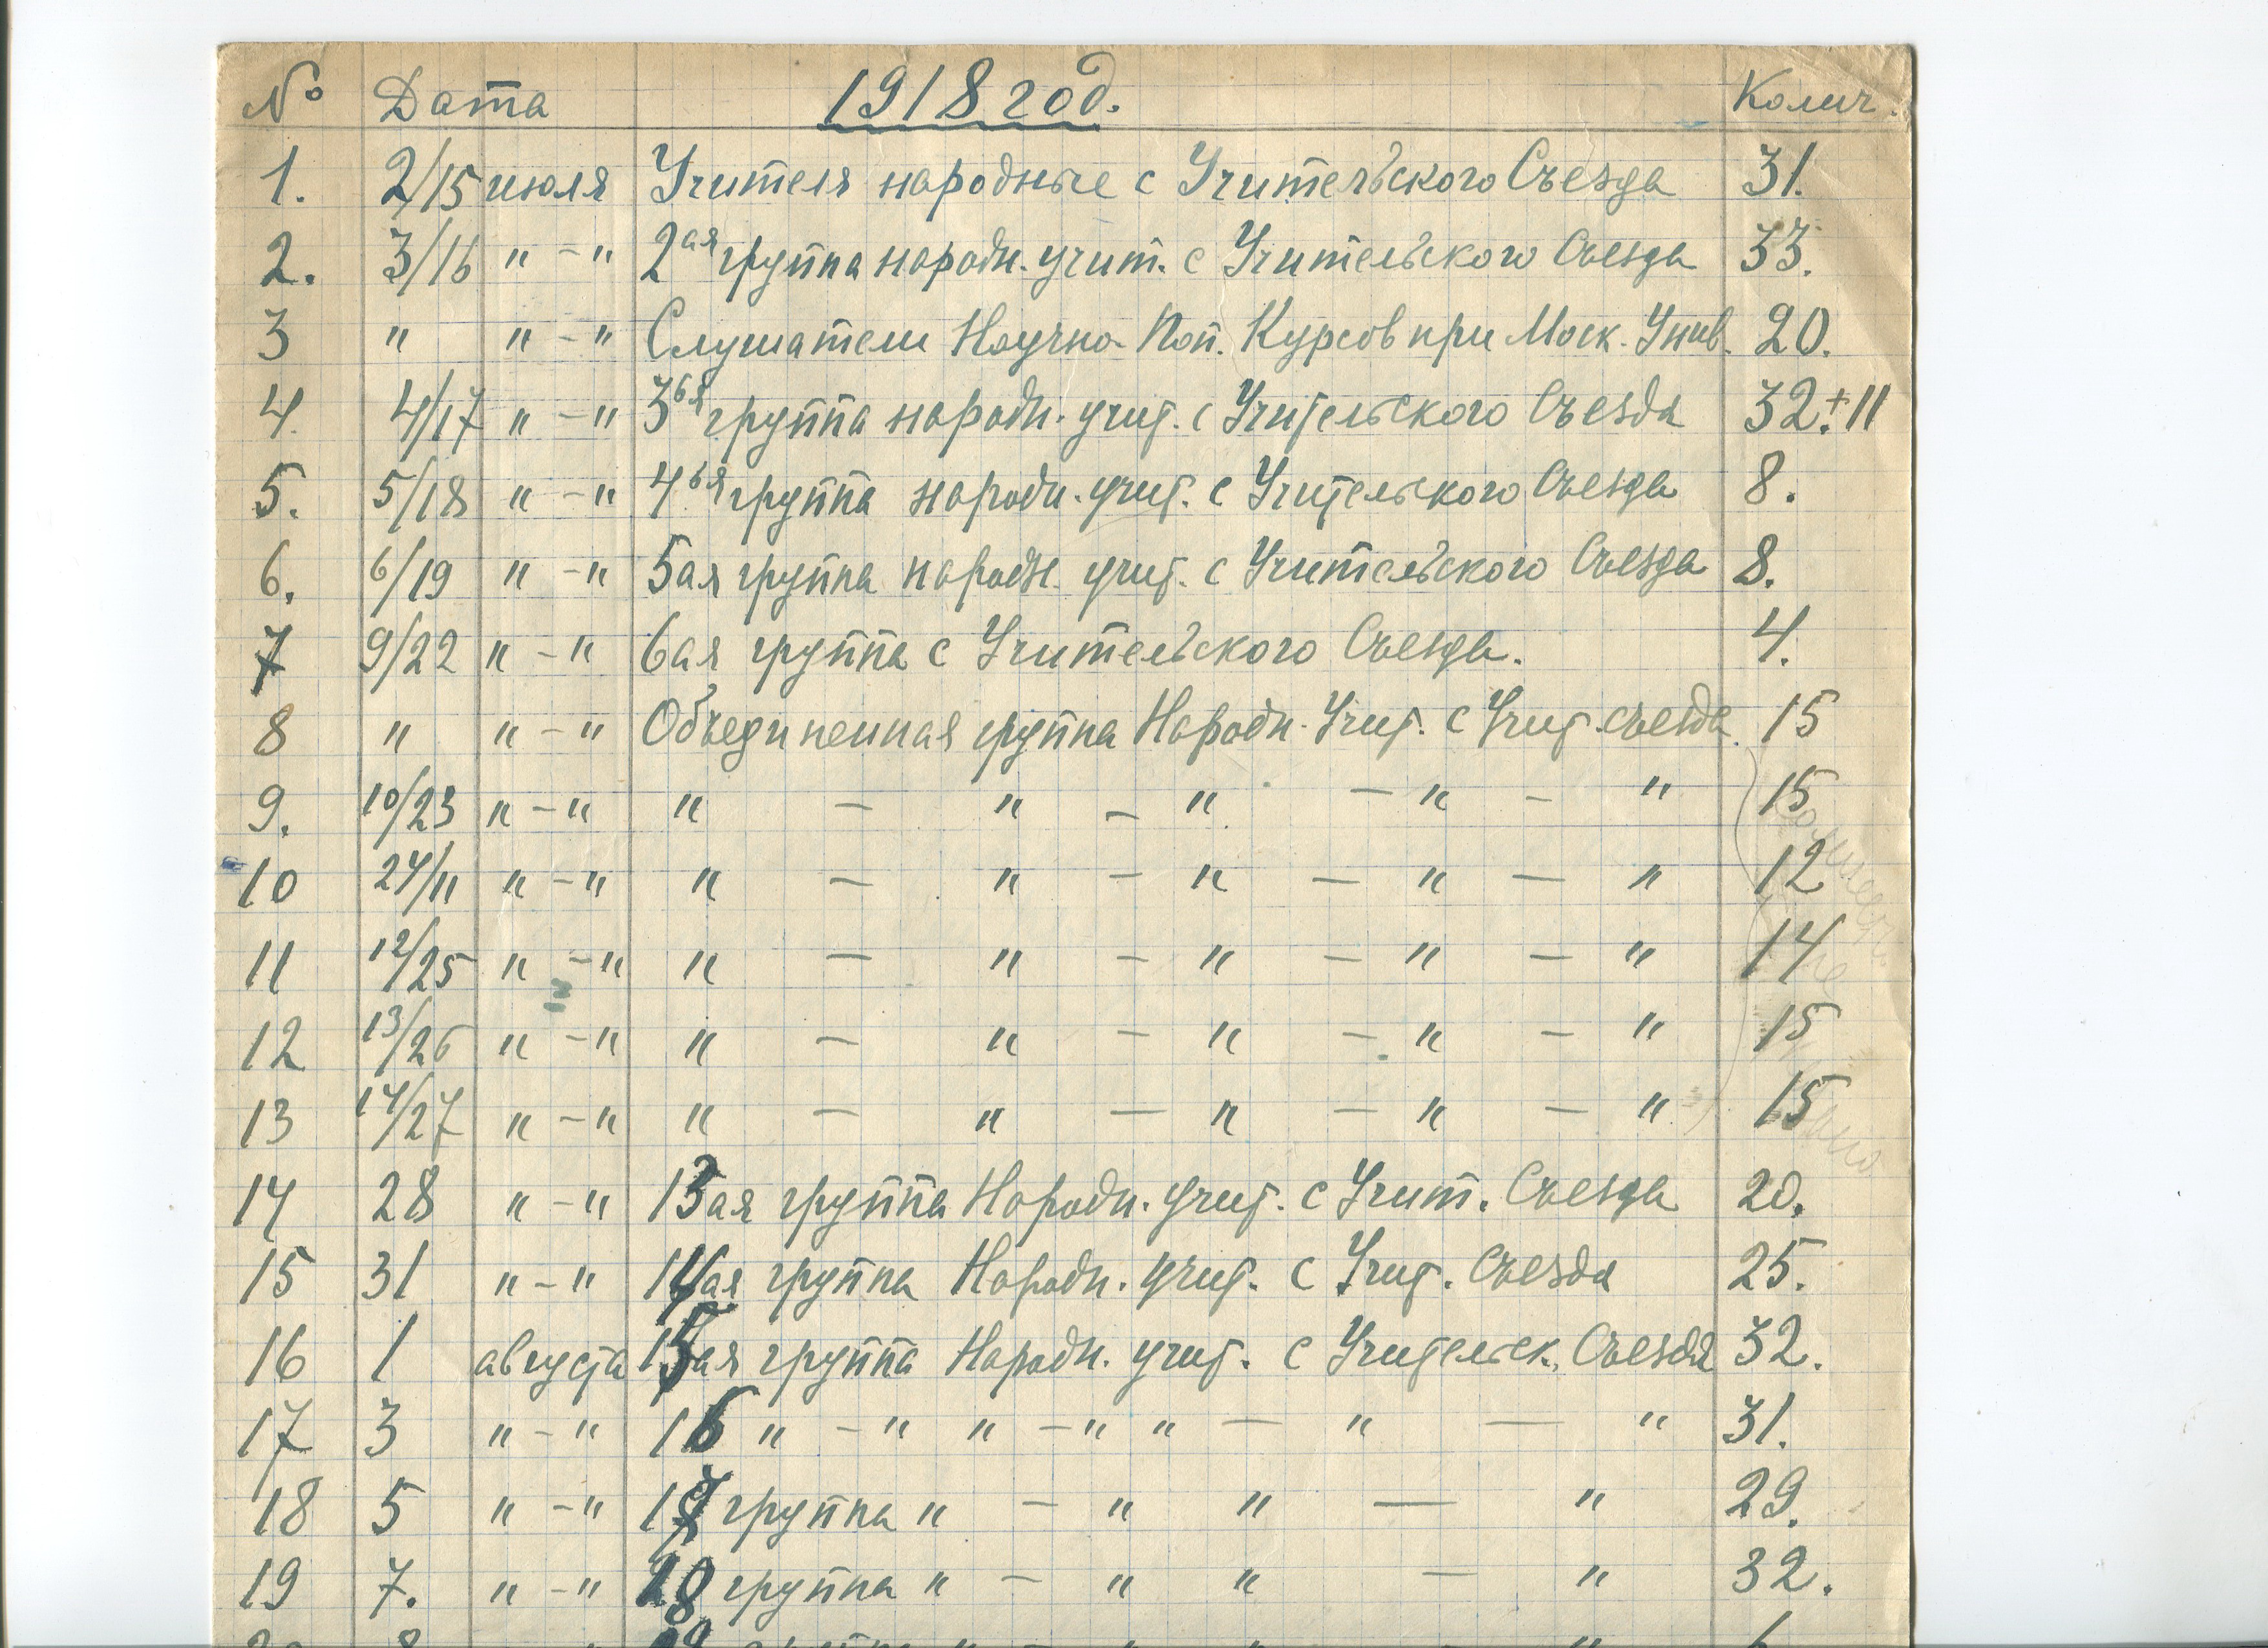 № Дата 1918 год. Колич.
1. 2/15 июля Учителя народные с Учительского Съезда 31.
2. 3/16 " – " 2ая группа народн. учит. с Учительского Съезда 33.
3 " " – " Слушатели Научно-Поп. Курсов при Моск. Унив. 20.
4. 4/17 " – " 3ья группа народн. учит. с Учительского Съезда 32.+11
5. 5/18 " – " 4ья группа народн. учит. с Учительского Съезда 8.
6. 6/19 " – " 5ая группа народн. учит. с Учительского Съезда 8.
7 9/22 " – " 6ая группа с Учительского Съезда. 4.
8 " " – " Объединенная группа Народн. Учит. с Учит. съезда. 15
9. 10/23 " – " " – " – " – " – " 15
10 24/11 " – " " – " – " – " – " 12
11 12/25 " – " " – " – " – " – " 14
12 13/26 " – " " – " – " – " – " 15
13 14/27 " – " " – " – " – " – " 15
14 28 " – " 13ая группа Народн. учит. с Учит. Съезда 20.
15 31 " – " 14ая группа Народн. учит. с Учит. Съезда 25.
16 1 августа 15ая группа Народн. учит. с Учительск. Съезда 32.
17 3 " – " 16 " – " " – " " – " – " 31.
18 5 " – " группа " – " " – " 29.
19 7. " – " группа " – " " – " 32.